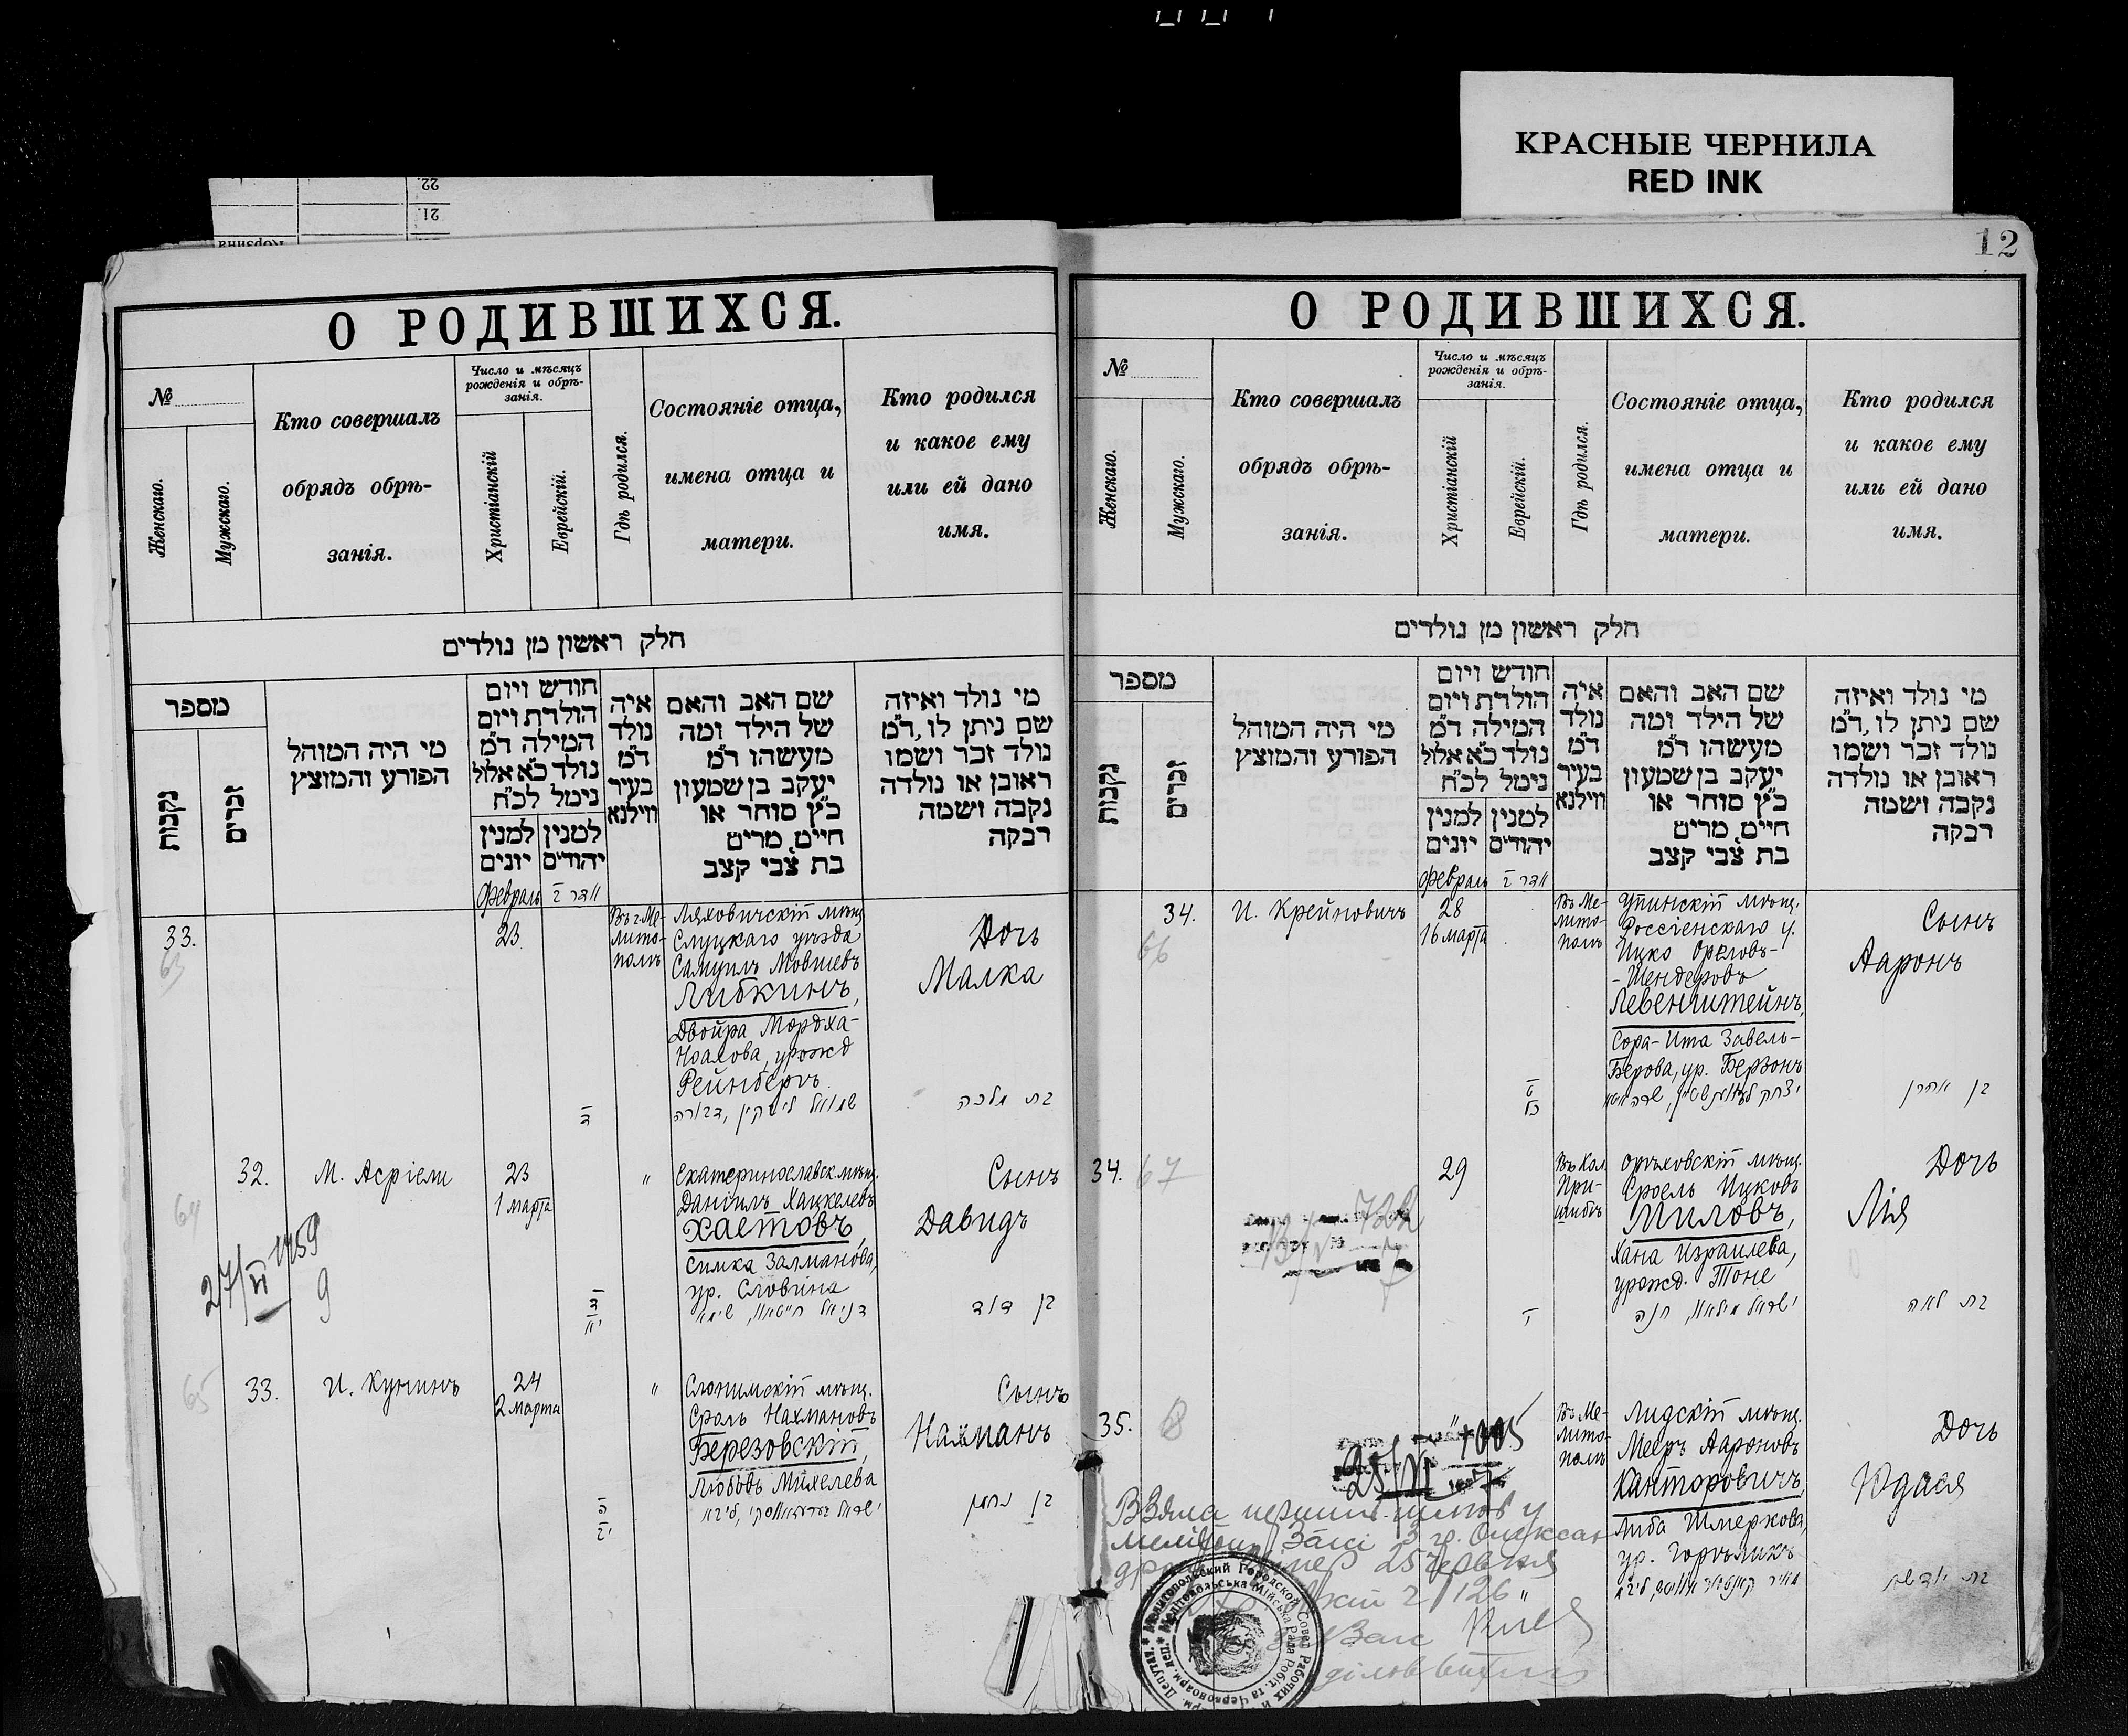 КРАСНЫЕ ЧЕРНИЛА
RED INK
12
22.
21.
Корзина
О РОДИВШИХСЯ.
№
Женскаго.
Мужскаго.
Кто совершалъ
обрядъ обрѣ-
занія.
Число и мѣсяцъ
рожденія и обрѣ-
занія.
Христіанскій
Еврейскій.
Гдѣ родился.
Состояніе отца,
имена отца и
матери.
Кто родился
и какое ему
или ей дано
имя.
חלק ראשון מן נולדים
מספר
נקבות
זכרים
מי היה המוהל
הפורע והמוצץ
חודש ויום
הולדת ויום
המילה ד״מ
נולד כ״א אלול
נימל לכ״ח
למנין יהודים
למנין יונים
איה
נולד
ד״מ
בעיר
ווילנא
שם האב והאם
של הילד ומה
מעשהו ד״מ
יעקב בן שמעון
כ״ץ סוחר או
חיים מרים
בת צבי קצב
מי נולד ואיזה
שם ניתן לו, ד״מ
נולד זכר ושמו
ראובן או נולדה
נקבה ושמה
רבקה
Февраль
אדר I
33.
63
23.
Въ г. Ме-
лито-
полѣ
Ляховичскій мѣщ.
Слуцкаго уѣзда
Самуилъ Мовшевъ
Либкинъ,
Двойра Мордха-
Ноахова, урожд
Рейнбергъ.
שמואל ליבקין, דבורה
Дочь
Малка
בת מלכה
ד
32.
64
М. Асріели
23
1 марта
"
Екатеринославск. мѣщ.
Даніилъ Хацкелевъ
Хаетовъ,
Симка Залманова,
ур. Словина
Сынъ
Давидъ
בן דוד
ד
יא
27/VI 1959
9
33.
65
И. Кунинъ
24
2 марта
"
Слонимскій мѣщ.
Сроль Нахмановъ
Березовскій,
Любовь Михелева
Сынъ
Нахманъ
בן נחמן
ה
יב
О РОДИВШИХСЯ.
№
Женскаго.
Мужскаго.
Кто совершалъ
обрядъ обрѣ-
занія.
Число и мѣсяцъ
рожденія и обрѣ-
занія.
Христіанскій
Еврейскій.
Гдѣ родился.
Состояніе отца,
имена отца и
матери.
Кто родился
и какое ему
или ей дано
имя.
חלק ראשון מן נולדים
מספר
נקבות
זכרים
מי היה המוהל
הפורע והמוצץ
חודש ויום
הולדת ויום
המילה ד״מ
נולד כ״א אלול
נימל לכ״ח
למנין יהודים
למנין יונים
איה
נולד
ד״מ
בעיר
ווילנא
שם האב והאם
של הילד ומה
מעשהו ד״מ
יעקב בן שמעון
כ״ץ סוחר או
חיים מרים
בת צבי קצב
מי נולד ואיזה
שם ניתן לו, ד״מ
נולד זכר ושמו
ראובן או נולדה
נקבה ושמה
רבקה
Февраль
אדר I
34.
66
И. Крейновичъ
28
16 марта
Въ Ме-
лито-
полѣ
Упинскій мѣщ.
Россіенскаго у.
Ицко Ореловъ-
-Шендеровъ
Левенштейнъ,
Сора-Ита Завель-
Берова, ур. Берзонъ
Сынъ
Ааронъ
בן אהרן
34.
67
29
Въ Кол.
При-
шибѣ
Орѣховскій мѣщ.
Сроель Ицковъ
Миловъ,
Хана Израилева,
урожд. Тоне
Дочь
Лія
בת לאה
722
35.
"
Въ Ме-
лито-
полѣ
Лидскій мѣщ.
Мееръ Аароновъ
Канторовичъ,
Либа Шмеркова,
ур. Горѣликъ
Дочь
Юдася
בת יודשה
1005
25/VI
Мелитопольский Городской Совет Рабочих и
Мелітопольська Міська Рада Робіт. та Червоноарм. деп.